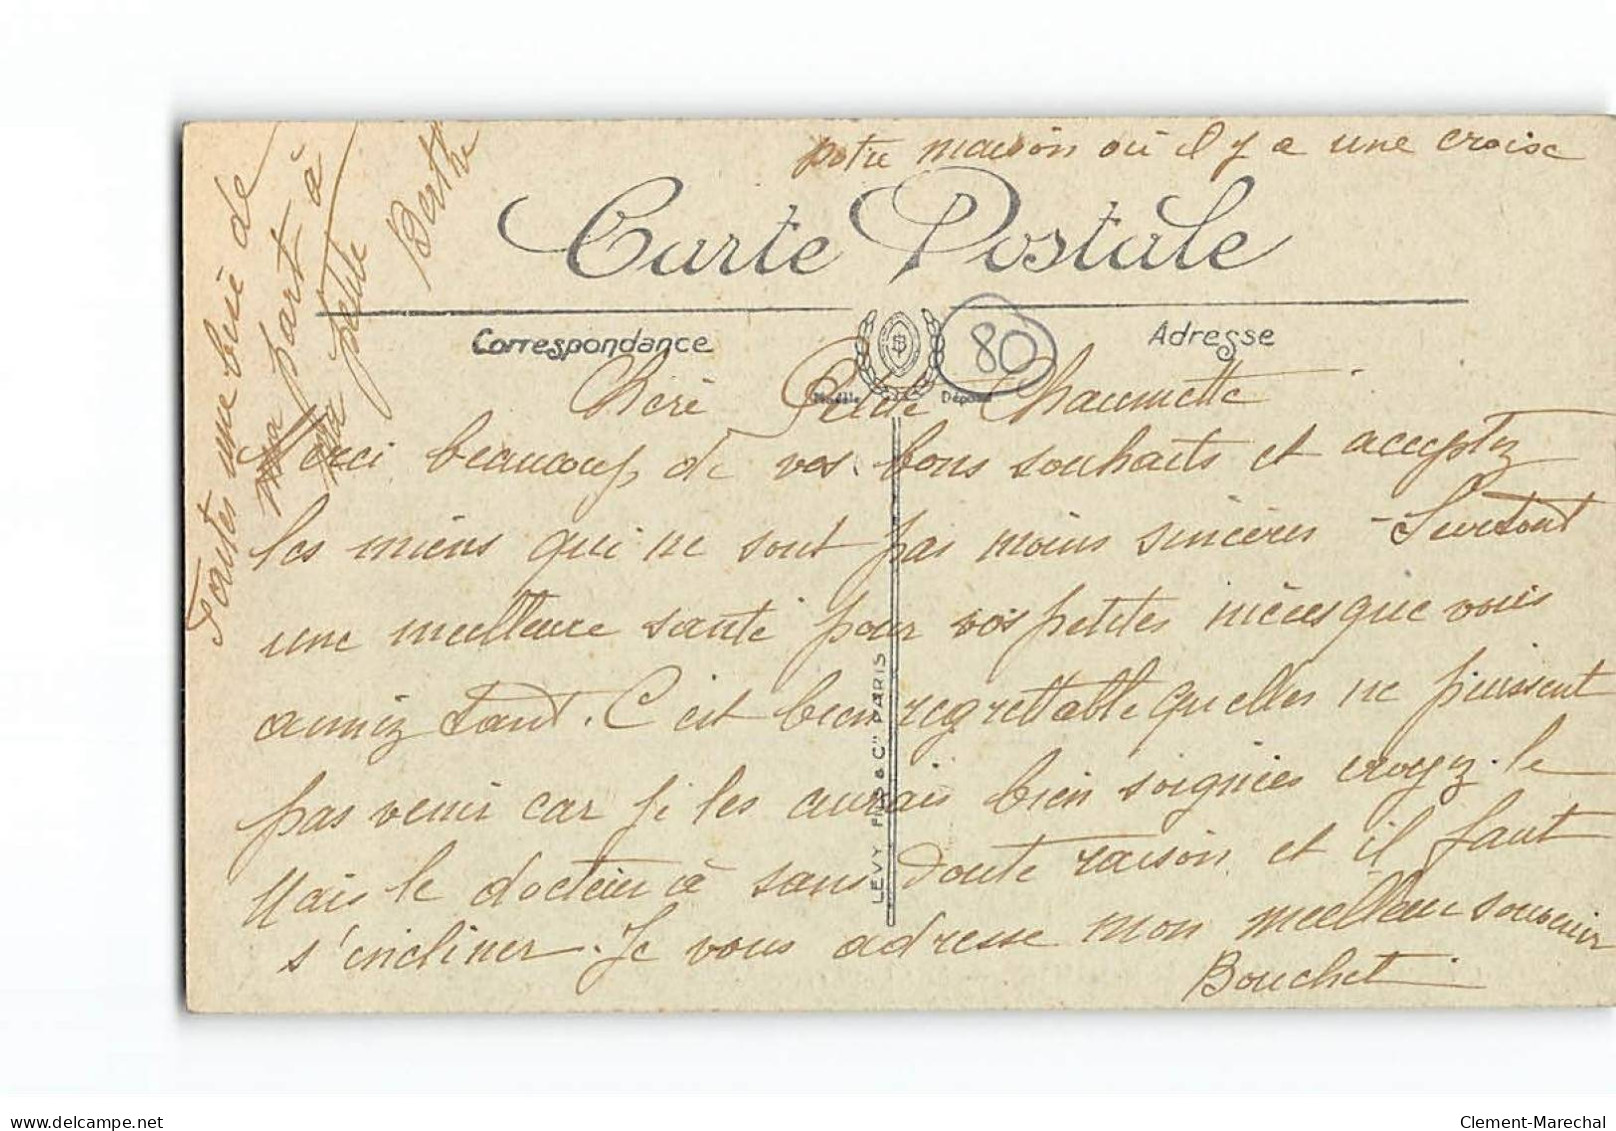 notre maison où il y a une croise
Carte Postale
Correspondance
80
Adresse
Modèle Déposé
Chère Petite Chaumette
Merci beaucoup de vos bons souhaits et acceptez
les miens qui ne sont pas moins sincères - Surtout
une meilleure santé pour vos petites nièces que vous
aimiez tant. C'est bien regrettable quelles ne puissent
pas venir car je les aurais bien soignées croyez-le
Mais le docteur à sans doute raison et il faut
s'incliner. Je vous adresse mon meilleur souvenir
Bouchet
Faites une bise de
ma part à
la petite
Berthe
LEVY FILS & Cie PARIS
Clement-Marechal
delcampe.net